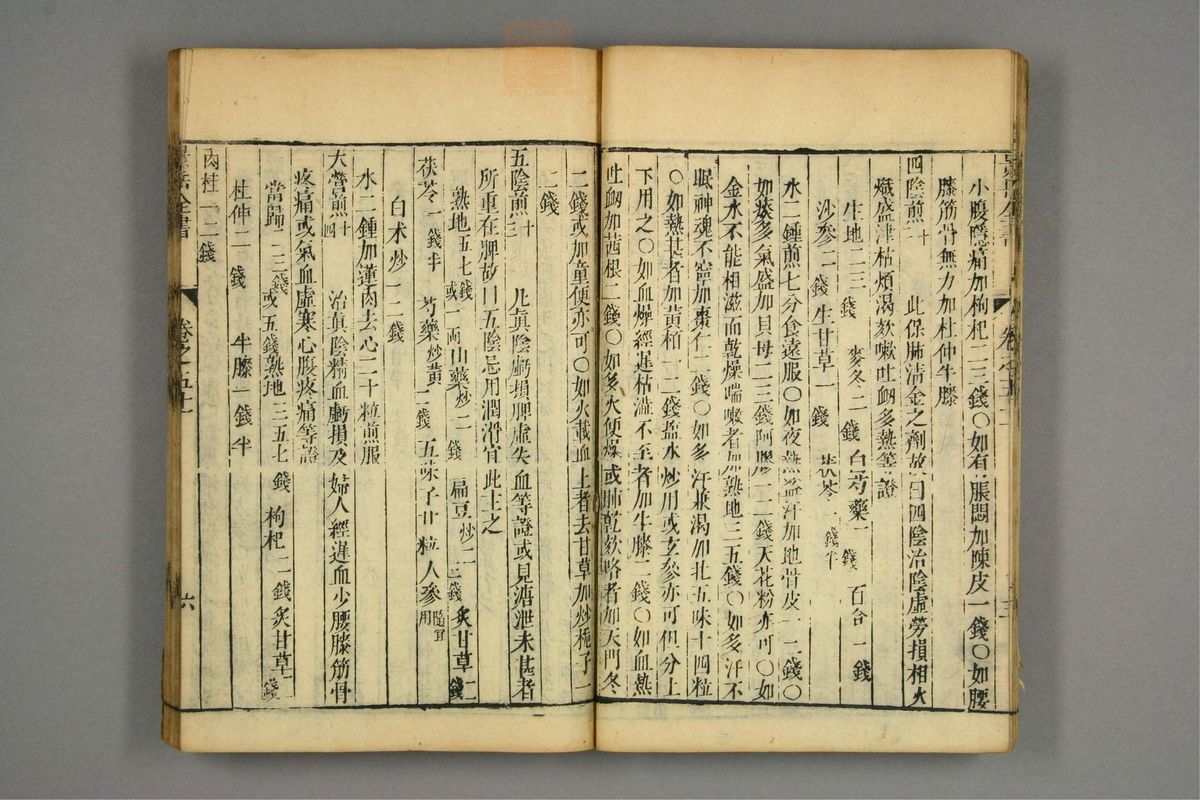 小腹隱痛加枸杞二三錢〇如有脹悶加陳皮一錢〇如腰
膝筋骨無力加杜仲牛膝
四陰煎 十二 此保肺清金之劑故曰四陰治陰虛勞損相火
熾盛津枯煩渴欬嗽吐衂多熱等證
生地二三錢 麥冬二錢 白芍藥二錢 百合二錢
沙參二錢 生甘草一錢 茯苓一錢半
水二鍾煎七分食遠服〇如夜熱盗汗加地骨皮一二錢〇
如痰多氣盛加貝母二三錢阿膠一二錢天花粉亦可〇如
金水不能相滋而乾燥喘嗽者加熟地三五錢〇如多汗不
眠神魂不寧加棗仁二錢〇如多汗兼渴加北五味十四粒
〇如熱甚者加黃栢一二錢盬水炒用或玄參亦可但分上
下用之〇如血燥經遲枯澁不至者加牛膝二錢〇如血熱
吐衂加茜根二錢〇如多火便燥或肺乾欬咯者加天門冬
二錢或加童便亦可〇如火載血上者去甘草加炒梔子一
二錢
五陰煎 十三 凡眞陰虧損脾虛失血等證或見溏泄未甚者
所重在脾故曰五陰忌用潤滑宜此主之
熟地五七錢或一兩 山藥炒二錢 扁豆炒二三錢 炙甘草一二錢
茯苓一錢半 芍藥炒黃二錢 五味子廿粒 人參隨宜用
白术炒一二錢
水二鍾加蓮肉去心二十粒煎服
大營煎 十四 治眞陰精血虧損及婦人經遲血少腰膝筋骨
疼痛或氣血虛寒心腹疼痛等證
當歸二三錢或五錢 熟地三五七錢 枸杞二錢 炙甘草一二錢
杜仲二錢 牛膝一錢半
肉桂一二錢
景岳全書 卷之五十一 六